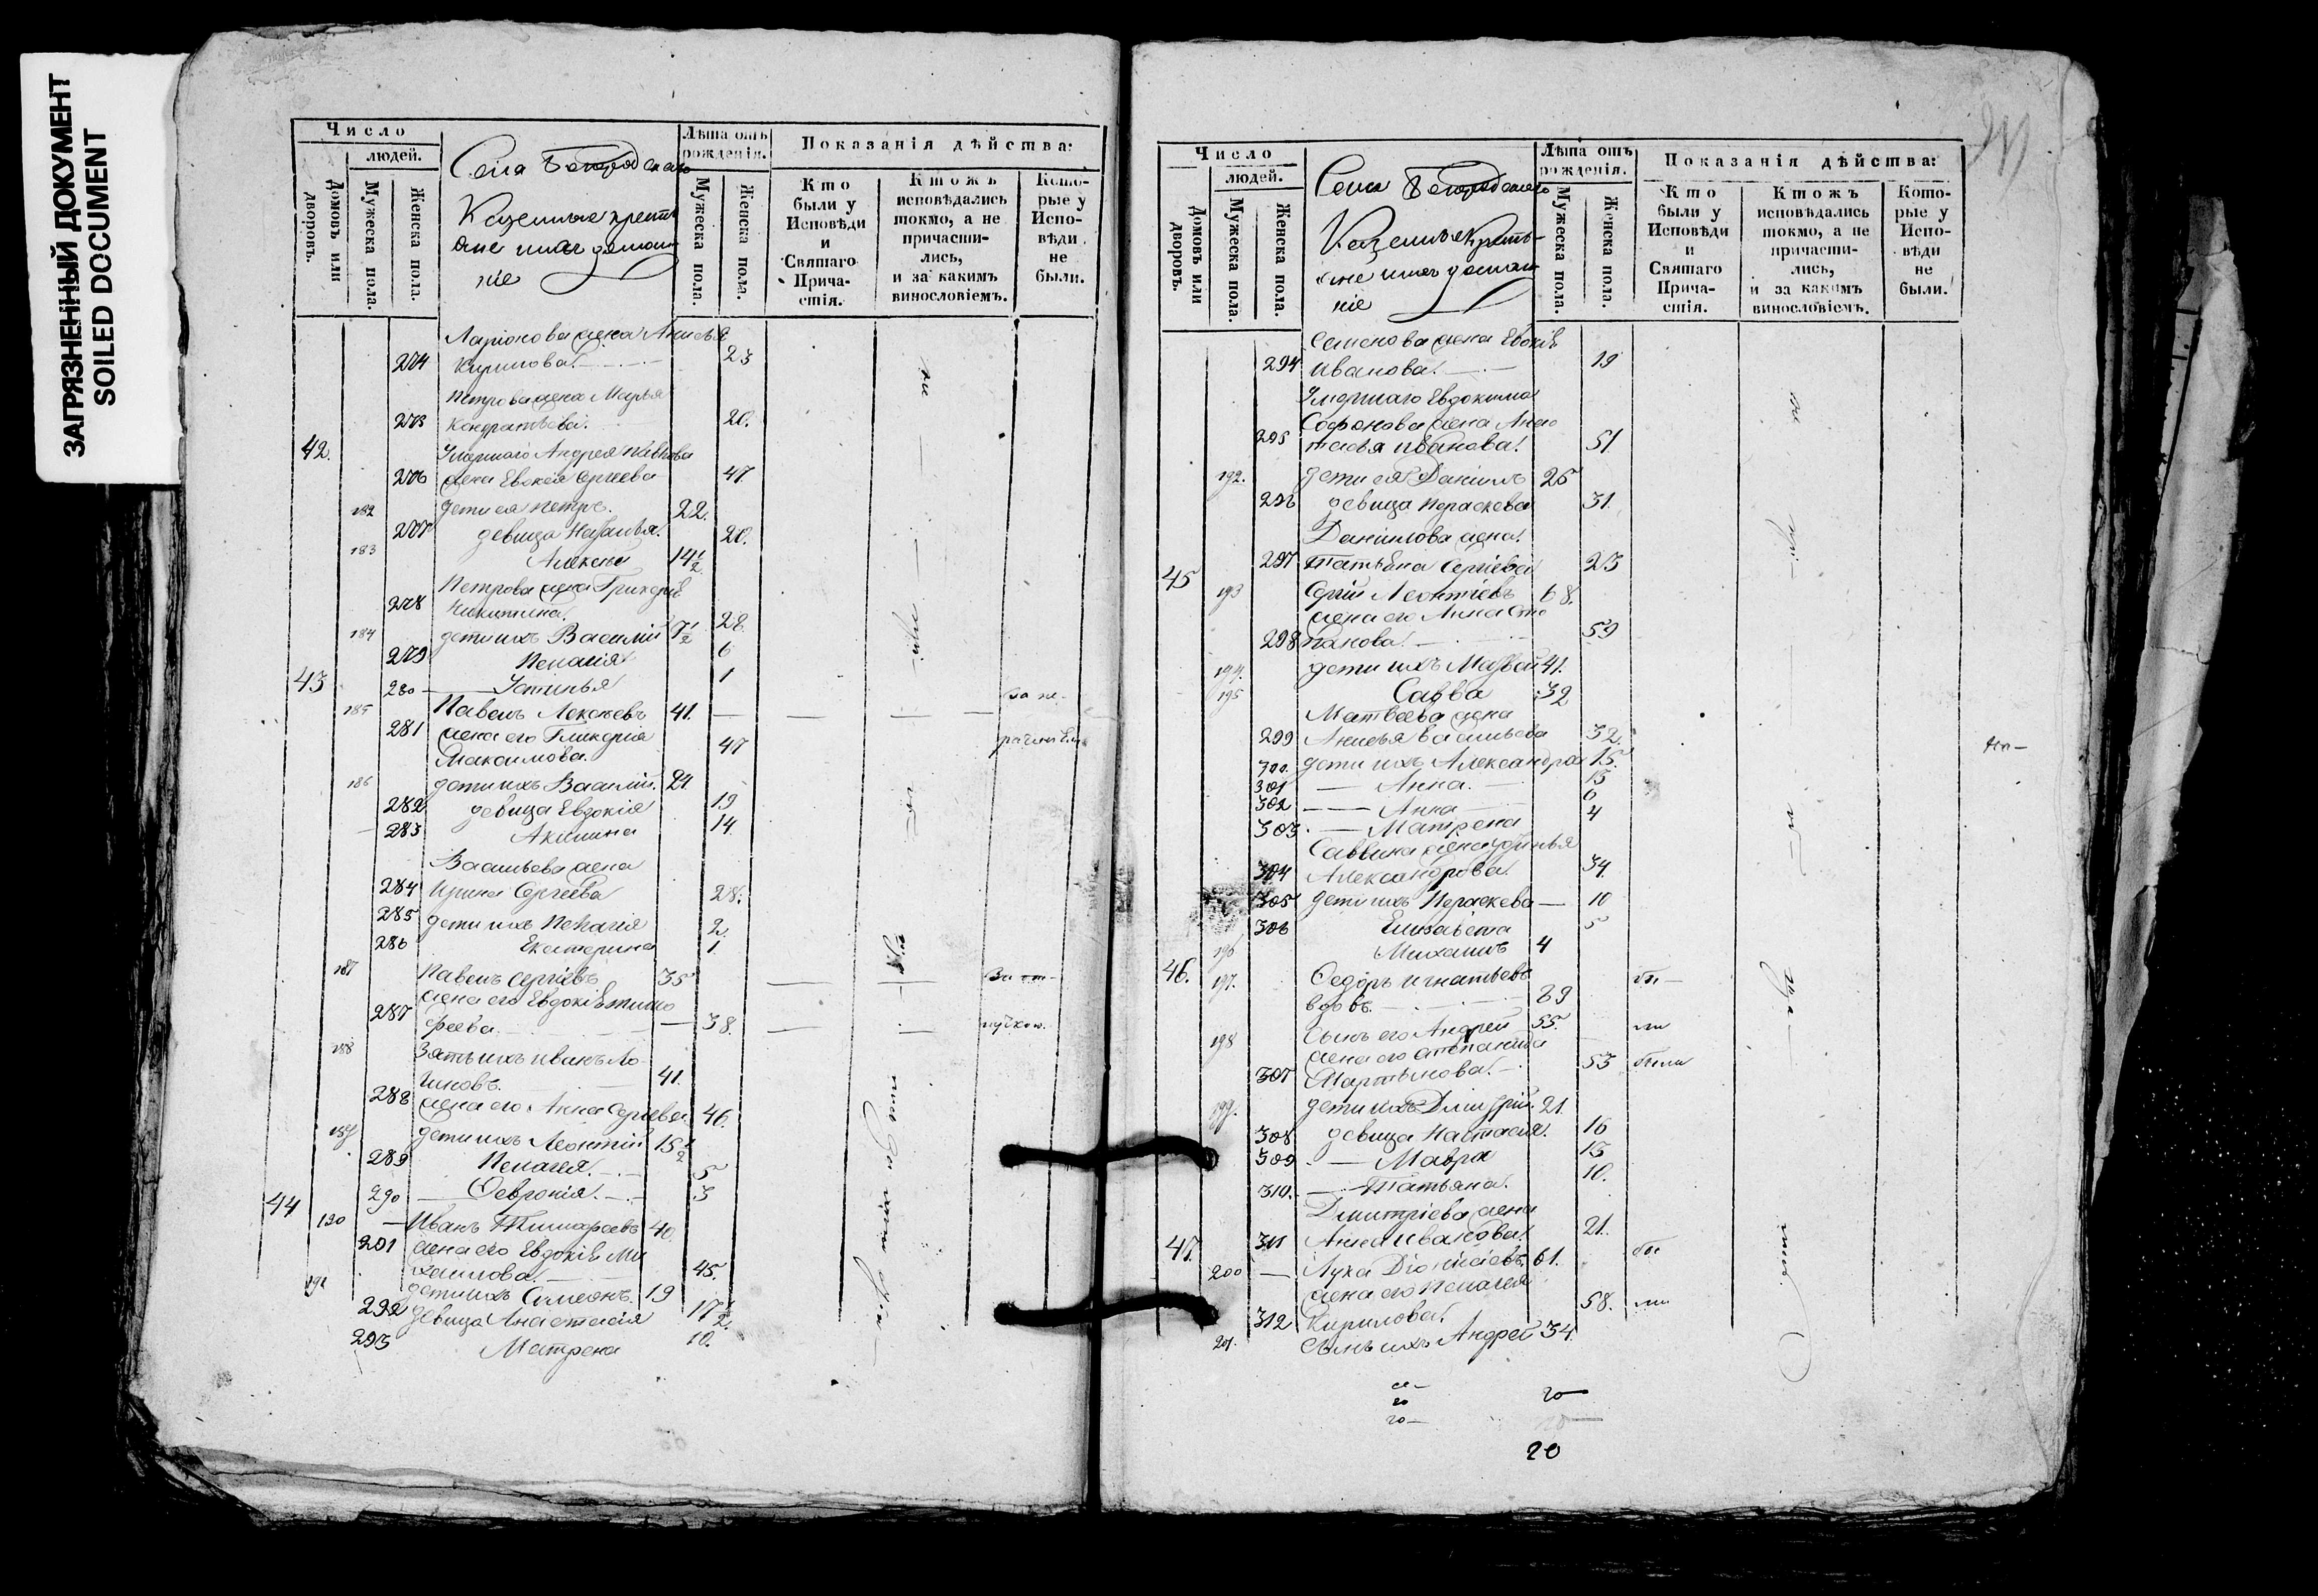 ЗАГРЯЗНЕННЫЙ ДОКУМЕНТ
SOILED DOCUMENT
Число
людей.
Домовъ или дворовъ.
Мужеска пола.
Женска пола.
Села Богородскаго
Казенные крестьяне
ніе
Лѣта отъ рожденія.
Мужеска пола.
Женска пола.
Показанія дѣйства:
Кто были у Исповѣди и Святаго Причастія.
Ктожъ исповѣдались токмо, а не причастились, и за какимъ винословіемъ.
Которые у Исповѣди не были.
Ларіонова жена Анисья
274 Кирилова 23
Петрова жена Марья
275 Кондратьева 20.
42. Умершаго Андрея
276 жена Евдокія Сергеева 47
182 дети ея Петръ. 22.
277 девица Наталья. 20.
183 Алексей 14½
Петрова жена
278 Никитина. 28
184 дети ихъ Василий 7½
279 Пелагія 6
43 280 Устинья 1
185 Павелъ Алексеевъ 41. за не-
281 жена его Гликерия 47
Максимова.
186 дети ихъ Василій. 21
282 девица Евдокія 19
283 Акилина 14
Васильева жена
284 Ирина Сергеева 28.
285 дети ихъ Пелагія 2.
286 Екатерина 1.
187 Павелъ Сергіевъ 35 За от-
жена его Евдокія Тимо
287 феева. 38.
188 Зять ихъ Иванъ Ло
гиновъ. 41.
288 жена его Анна Сергеева 46.
189 дети ихъ Леонтій 15½
289 Пелагея. 5
290 Февронія. 3
44 190 Иванъ Тимофеевъ 40.
291 жена его Евдокія Ми
хаилова. 45.
191 дети ихъ Симеонъ. 19
292 девица Анастасія 17½.
293 Матрена 10.
Число
людей.
Домовъ или дворовъ.
Мужеска пола.
Женска пола.
Села Богородскаго
Казенные крестьяне
ніе
Лѣта отъ рожденія.
Мужеска пола.
Женска пола.
Показанія дѣйства:
Кто были у Исповѣди и Святаго Причастія.
Ктожъ исповѣдались токмо, а не причастились, и за какимъ винословіемъ.
Которые у Исповѣди не были.
Семенова жена Евдокія
294 Иванова. 19
Умершаго Евдокима
Софонова жена Анас
295 тасья Иванова. 51.
192. дети ея Даніилъ 25
296 девица Параскева 31.
Данилова жена
297 Татьяна Сергіева 23
45 193 Сергій Леонтіевъ 68.
жена его Анна Сте
298 панова. 59
194. дети ихъ Матвей 41.
195 Савва 32
Матвеева жена
299 Анисья Васильева 32.
300 дети ихъ Александра 15.
301 Анна. 13
302 Анна 6
303 Матрена 4
Саввина жена Устинья
304 Александрова 34
305 дети ихъ Параскева 10
306 Елизавета 5
196 Михаилъ 4
46. 197. Федоръ Игнатьевъ
вдовъ.
198 Сынъ его Андрей 55.
жена его Степанида
307 Мартынова. 53 были
199. дети ихъ Дмитрій. 21.
308 девица Настасія. 16
309 Мавра 13
310. Татьяна. 10.
Дмитріева жена
311 Анна Иванова. 21.
47. 200 Лука Діонисіевъ. 61.
жена его Пелагея
312 Кирилова. 58.
201. Сынъ ихъ Андрей 34.
20
20
20
20